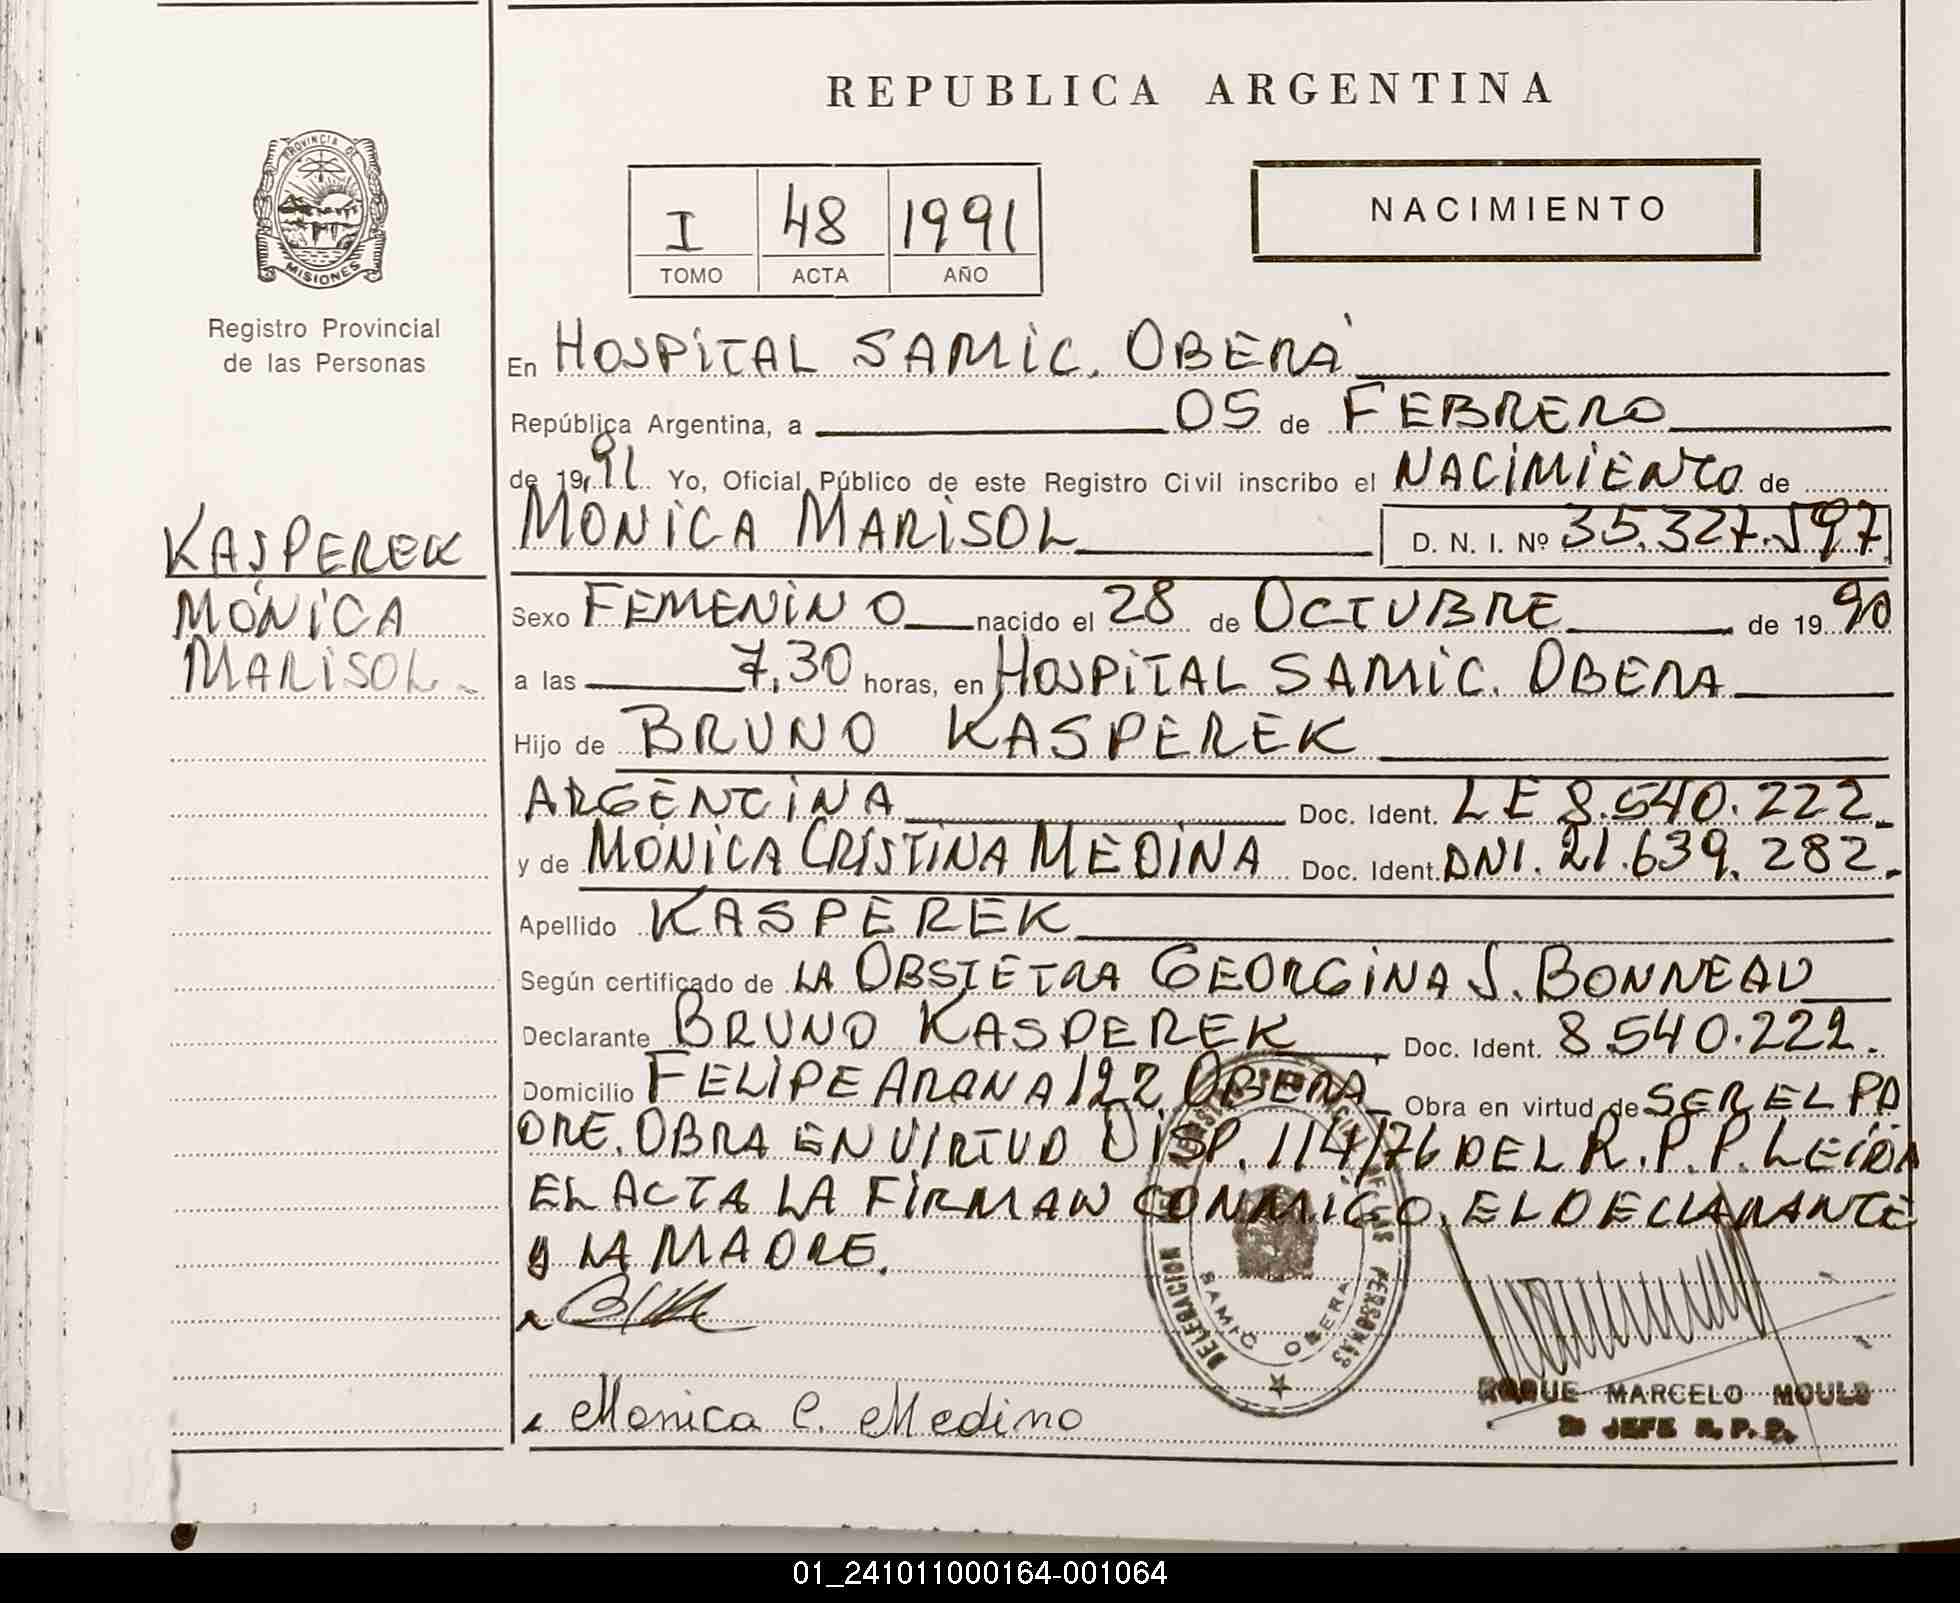 REPUBLICA ARGENTINA
PROVINCIA DE
MISIONES
Registro Provincial
de las Personas
I 48 1991
TOMO ACTA AÑO
NACIMIENTO
En HOSPITAL SAMIC. OBERÁ
República Argentina, a 05 de FEBRERO
de 1991 Yo, Oficial Público de este Registro Civil inscribo el NACIMIENTO de
KASPEREK
MÓNICA
MARISOL.
MONICA MARISOL D. N. I. Nº 35.327.597
Sexo FEMENINO nacido el 28 de OCTUBRE de 1990
a las 7,30 horas, en HOSPITAL SAMIC. OBERA
Hijo de BRUNO KASPEREK
ARGENTINA Doc. Ident. LE 8.540.222.
y de MÓNICA CRISTINA MEDINA Doc. Ident. DNI. 21.639.282.
Apellido KASPEREK
Según certificado de LA OBSTETRA GEORGINA S. BONNEAU
Declarante BRUNO KASPEREK Doc. Ident. 8.540.222.
Domicilio FELIPE ARANA 122 OBERA Obra en virtud de SER EL PA
DRE. OBRA EN VIRTUD DISP. 114/76 DEL R.P.P. LEIDA
EL ACTA LA FIRMAN CONMIGO, EL DECLARANTE
Y LA MADRE.
DELEGACION
PERSONAS
SAMIC OBERA
Monica C. Medina
ROQUE MARCELO
JEFE R. P. P.
01_241011000164-001064